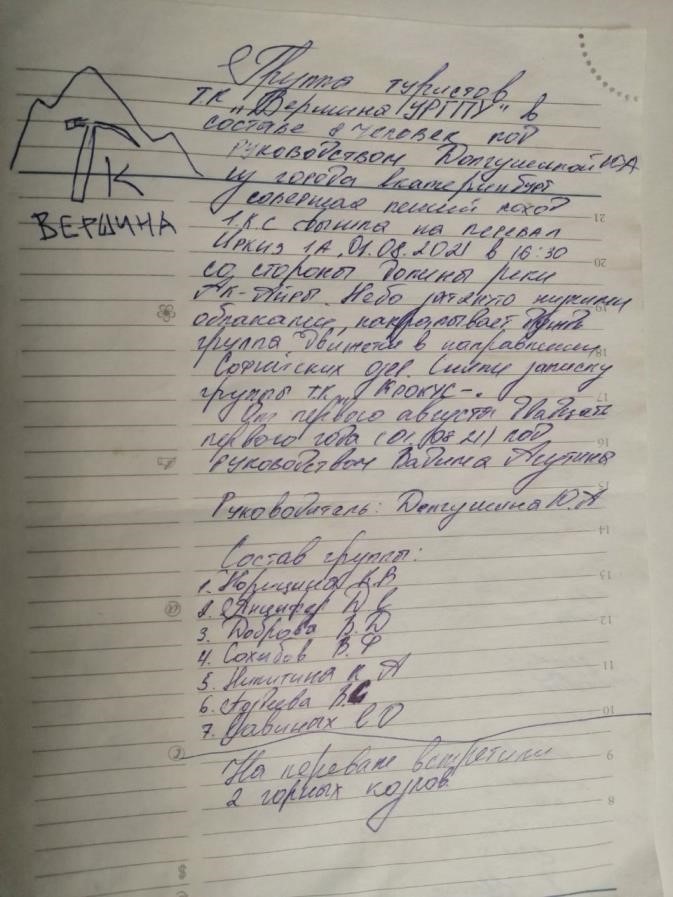 Группа туристов
ТК "Вершина УРГПУ" в
составе 8 человек под
руководством Долгушиной Ю А
из города Екатеринбург
совершая пеший поход
1 К.С вышла на перевал
Иркиз 1А, 01.08.2021 в 16:30
со стороны долины реки
Ак-Айры. Небо затянуто нижними
облаками, накрапывает дождь
группа движется в направлении
Софийских озер. Сняли записку
группы т.к. Крокус-.
От первого августа двадцать
первого года (01.08.21) под
руководством Вадима
Руководитель: Долгушина Ю.А
Состав группы:
1. В.В
2. Д С
3. Доброва В.Д
4. Сохибов В.Ф
5. Никитина К А
6. В.С
7. С О
На перевале встретили
2 горных козлов.
К
ВЕРШИНА
21
20
19
18
17
16
15
14
13
12
11
10
9
8
@
€
$